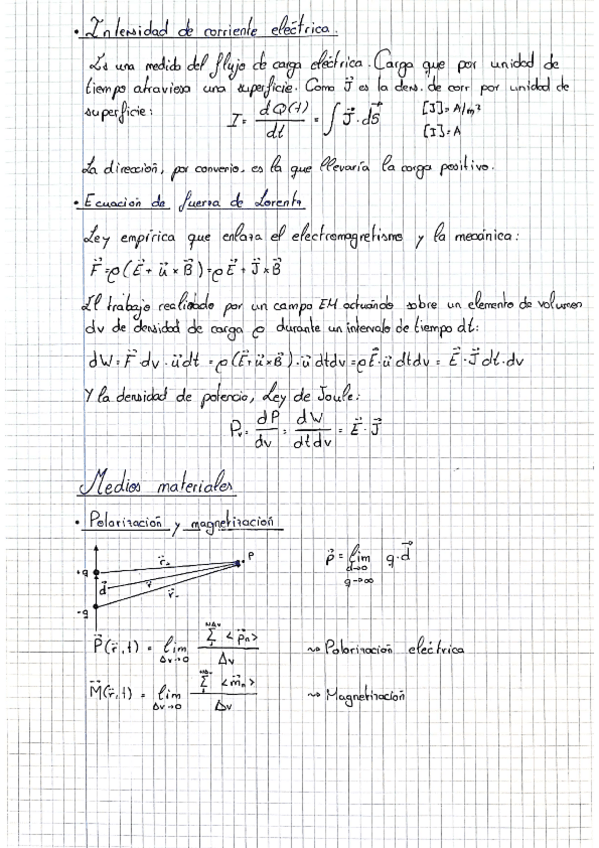 · Intensidad de corriente eléctrica.
Es una medida del flujo de carga eléctrica. Carga que por unidad de
tiempo atraviesa una superficie. Como J⃗ es la dens. de corr por unidad de
superficie: I = dQ(t)/dt = ∫ J⃗·dS⃗ [J] = A/m² [I] = A
La dirección, por convenio, es la que llevaría la carga positiva.
· Ecuación de fuerza de Lorentz
Ley empírica que enlaza el electromagnetismo y la mecánica:
F⃗ = ρ(E⃗ + u⃗ × B⃗) = ρE⃗ + J⃗ × B⃗
El trabajo realizado por un campo EM actuando sobre un elemento de volumen
dv de densidad de carga ρ durante un intervalo de tiempo dt:
dW = F⃗ dv · u⃗dt = ρ(E⃗ + u⃗ × B⃗)·u⃗ dtdv = ρE⃗·u⃗ dtdv = E⃗·J⃗ dt·dv
Y la densidad de potencia, Ley de Joule:
Pv = dP/dv = dW/dtdv = E⃗·J⃗
Medios materiales
· Polarización y magnetización
+q d⃗ -q r⃗₊ r r⃗₋ P p⃗ = lim d→0 q→∞ q·d⃗
P⃗(r⃗,t) = lim Δv→0 Σ <p⃗n> / Δv ~> Polarización eléctrica
M⃗(r⃗,t) = lim Δv→0 Σ <m⃗n> / Δv ~> Magnetización